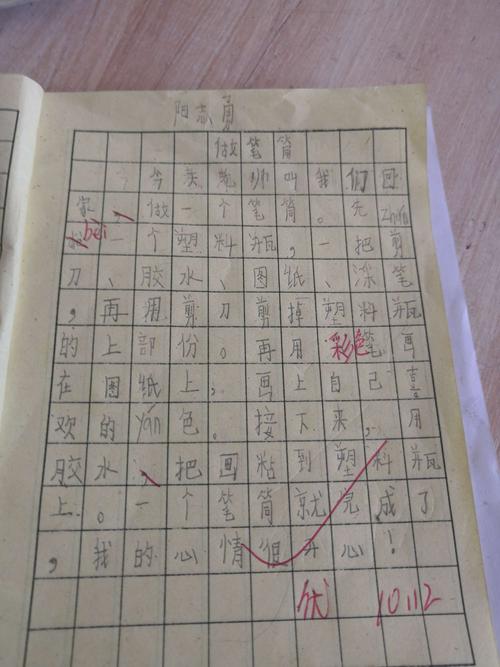 阳志勇
做笔筒
今天老师叫我们回
家做一个笔筒。先zhǔn
bèi一个塑料瓶,一把剪
刀、胶水、图纸、涂笔
,再用剪刀剪掉塑料瓶
的上部份。再用彩色笔画
在图纸上,画上自己喜
欢的yán色。接下来,用
胶水、把画粘到塑料瓶
上。一个笔筒就完成了
,我的心情很开心!
优 10.12